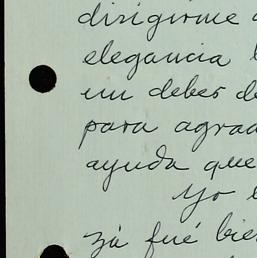 dirigirme a
elegancia
un deber de
para agrad
ayuda que
Yo
zá fué bie